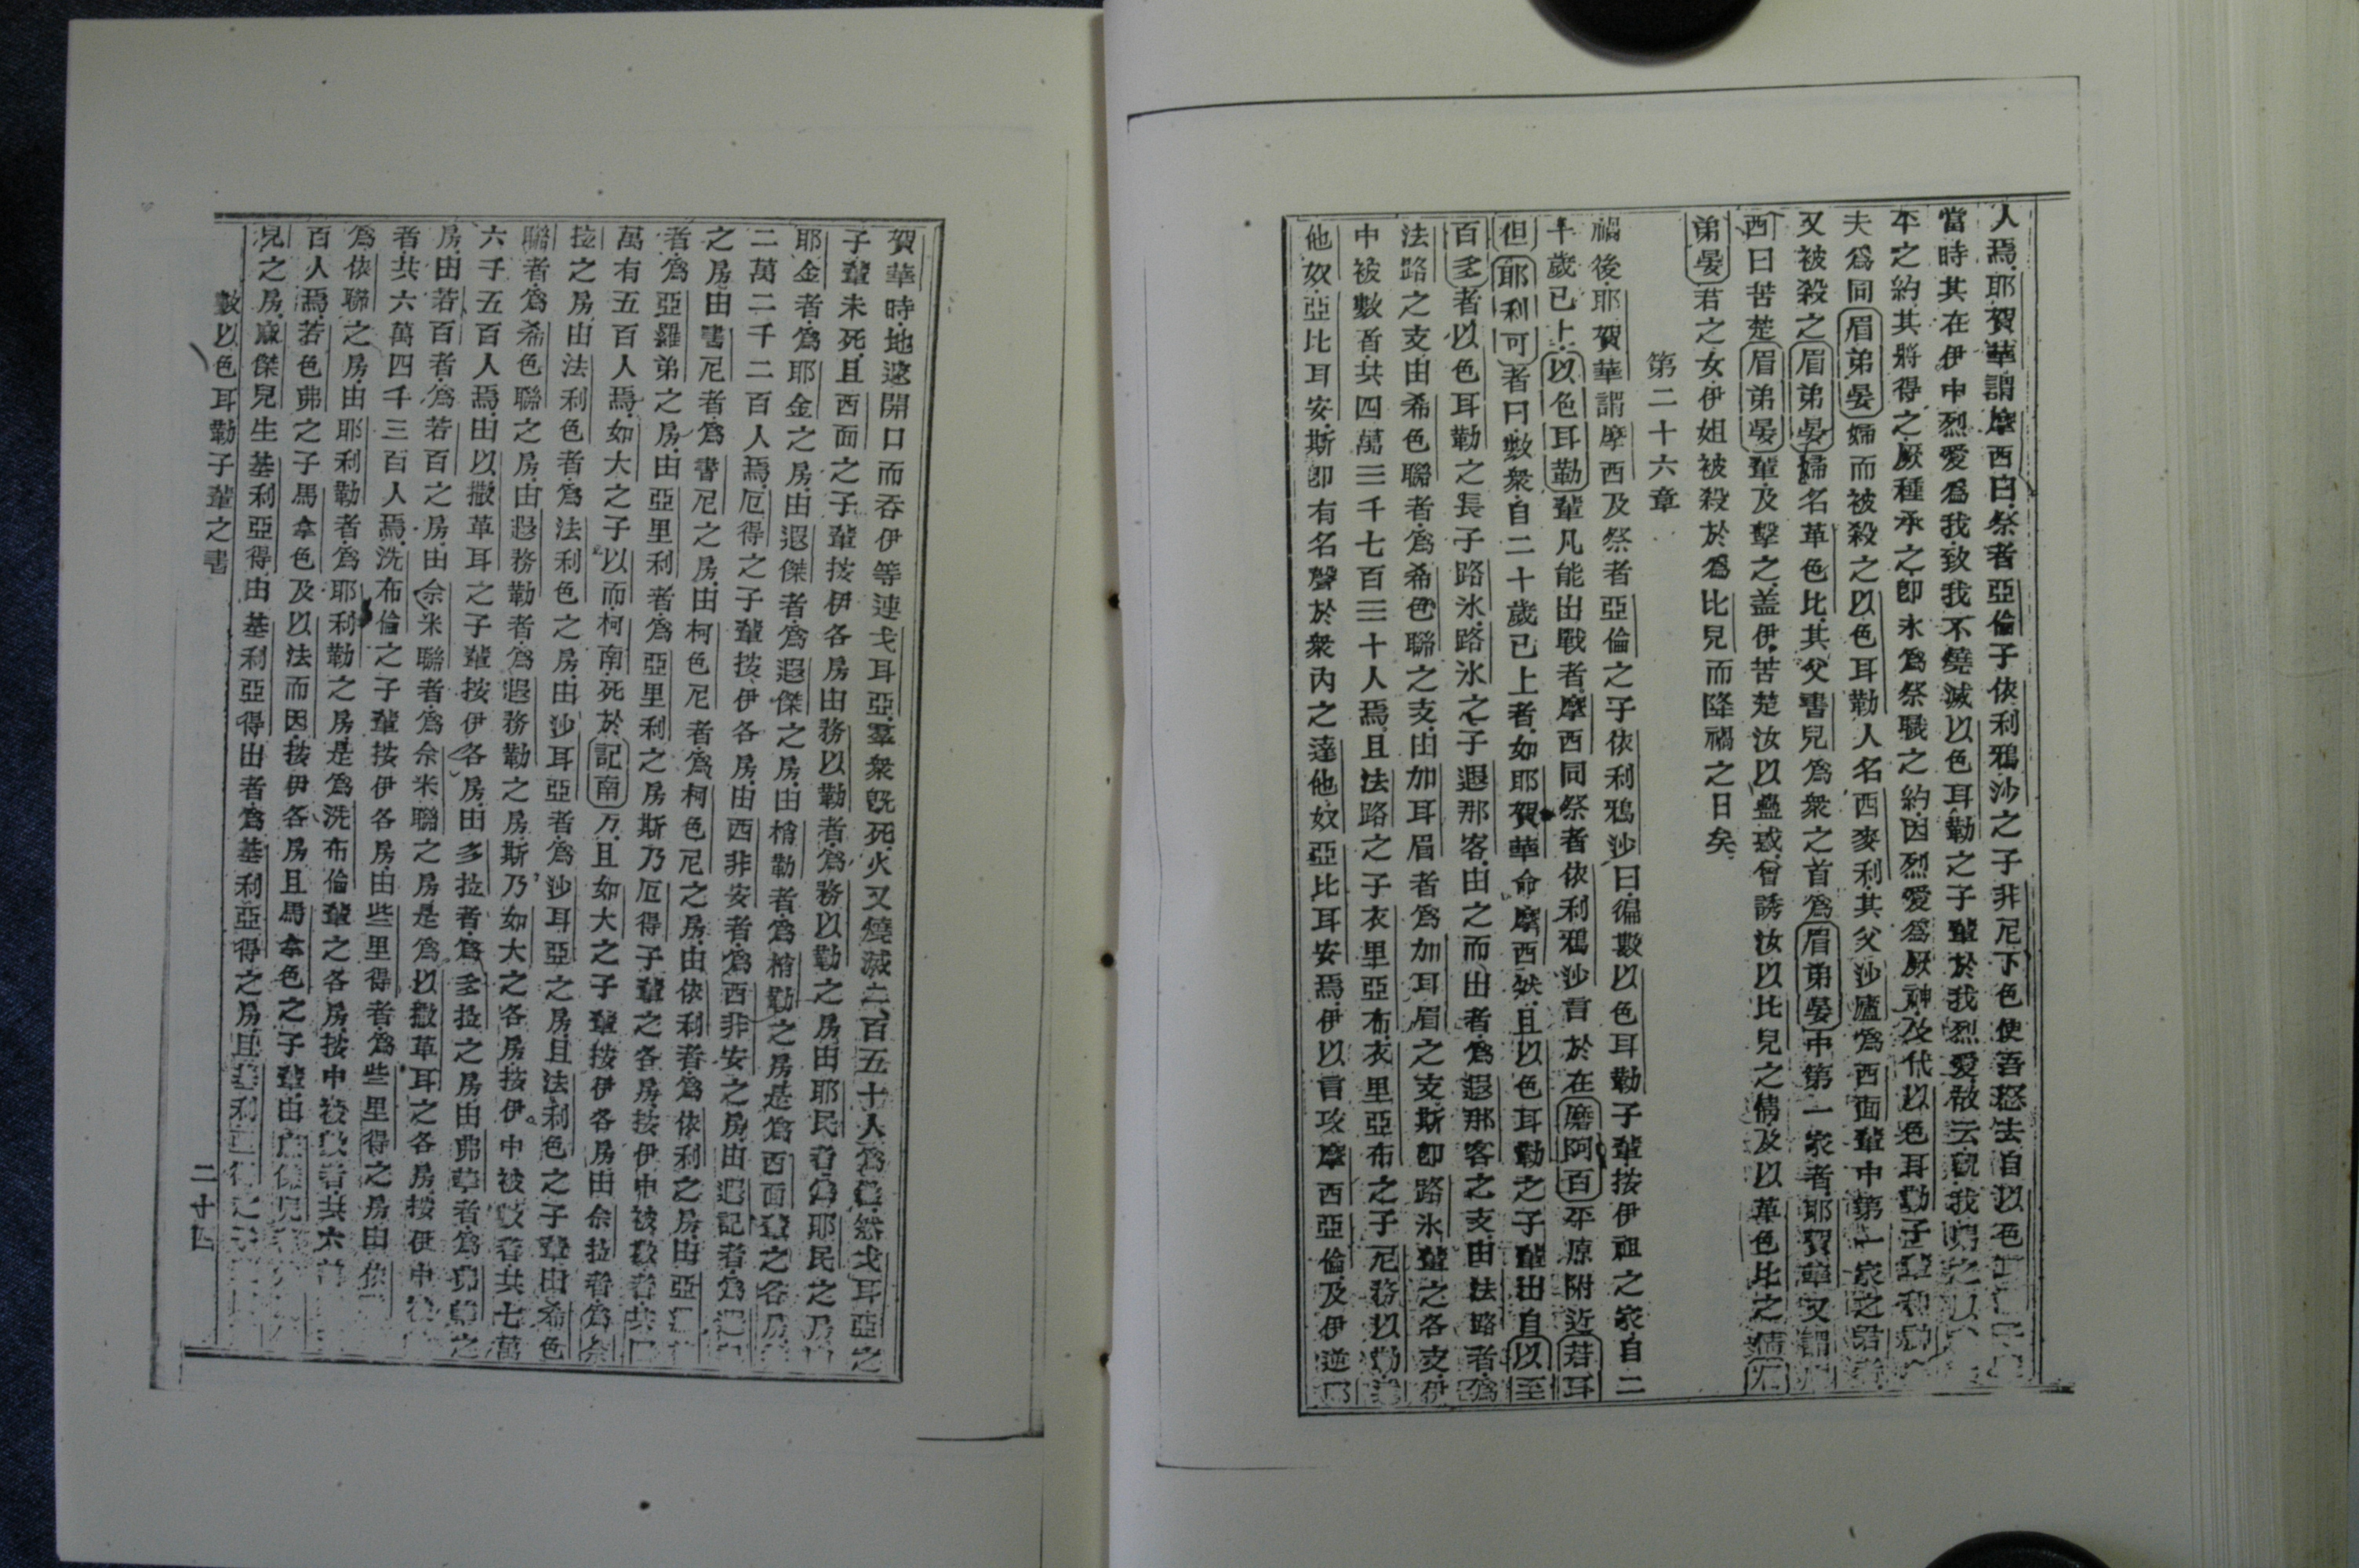 人焉耶賀華謂摩西曰祭者亞倫子依利鴉沙之子非尼下色使吾怒去自以色
當時其在伊中烈愛爲我致我不燒滅以色耳勒之子輩於我烈愛故云我
年之約其將得之厥種承之卽永爲祭職之約因烈愛爲厥神及代以色耳勒子輩
夫爲同眉弟晏婦而被殺之以色耳勒人名西麥利其父沙廬爲西面輩中第一家之君者
又被殺之眉弟晏婦名革色比其父書兒爲衆之首爲眉弟晏中第一家者耶賀華又謂
西曰苦楚眉弟晏輩及擊之盖伊苦楚汝以蠱惑曾誘汝以比兒之情及以革色比之情
弟晏君之女伊姐被殺於爲比兒而降禍之日矣
第二十六章
禍後耶賀華謂摩西及祭者亞倫之子依利鴉沙曰徧數以色耳勒子輩按伊祖之家自二
十歲已上以色耳勒輩凡能出戰者摩西同祭者依利鴉沙言於在磨阿百平原附近若耳
但耶利可者曰數衆自二十歲已上者如耶賀華命摩西然且以色耳勒之子輩出自以至
百多者以色耳勒之長子路氷路氷之子遐那客由之而出者爲遐那客之支由法路者爲
法路之支由希色聯者爲希色聯之支由加耳眉者爲加耳眉之支斯卽路氷輩之各支伊
中被數者共四萬三千七百三十人焉且法路之子衣里亞布衣里亞布之子尼務以勒
他奴亞比耳安斯卽有名聲於衆內之達他奴亞比耳安焉伊以言攻摩西亞倫及伊逆耶
賀華時地遂開口而吞伊等連戈耳亞羣衆旣死火又燒滅二百五十人爲然戈耳亞之
子輩未死且西面之子輩按伊各房由務以勒者爲務以勒之房由耶民者爲耶民之房
耶金者爲耶金之房由遐傑者爲遐傑之房由梢勒者爲梢勒之房是爲西面輩之各房
二萬二千二百人焉厄得之子輩按伊各房由西非安者爲西非安之房由遐記者爲遐
之房由書尼者爲書尼之房由柯色尼者爲柯色尼之房由依利者爲依利之房由亞
者爲亞羅弟之房由亞里利者爲亞里利之房斯乃厄得子輩之各房按伊中被數者共
萬有五百人焉如大之子以而柯南死於記南方且如大之子輩按伊各房由佘拉者爲佘
拉之房由法利色者爲法利色之房由沙耳亞者爲沙耳亞之房且法利色之子輩由希色
聯者爲希色聯之房由遐務勒者爲遐務勒之房斯乃如大之各房按伊中被數者共七萬
六千五百人焉由以撒革耳之子輩按伊各房由多拉者爲多拉之房由弗革者爲弗革之
房由若百者爲若百之房由佘米聯者爲佘米聯之房是爲以撒革耳之各房按伊中被
者共六萬四千三百人焉洗布倫之子輩按伊各房由些里得者爲些里得之房由依
爲依聯之房由耶利勒者爲耶利勒之房是爲洗布倫輩之各房按中被數者共六
百人焉若色弗之子馬拿色及以法而因按伊各房且馬拿色之子輩由
見之房麻傑見生基利亞得由基利亞得出者爲基利亞得之房且基利
數以色耳勒子輩之書
二十四